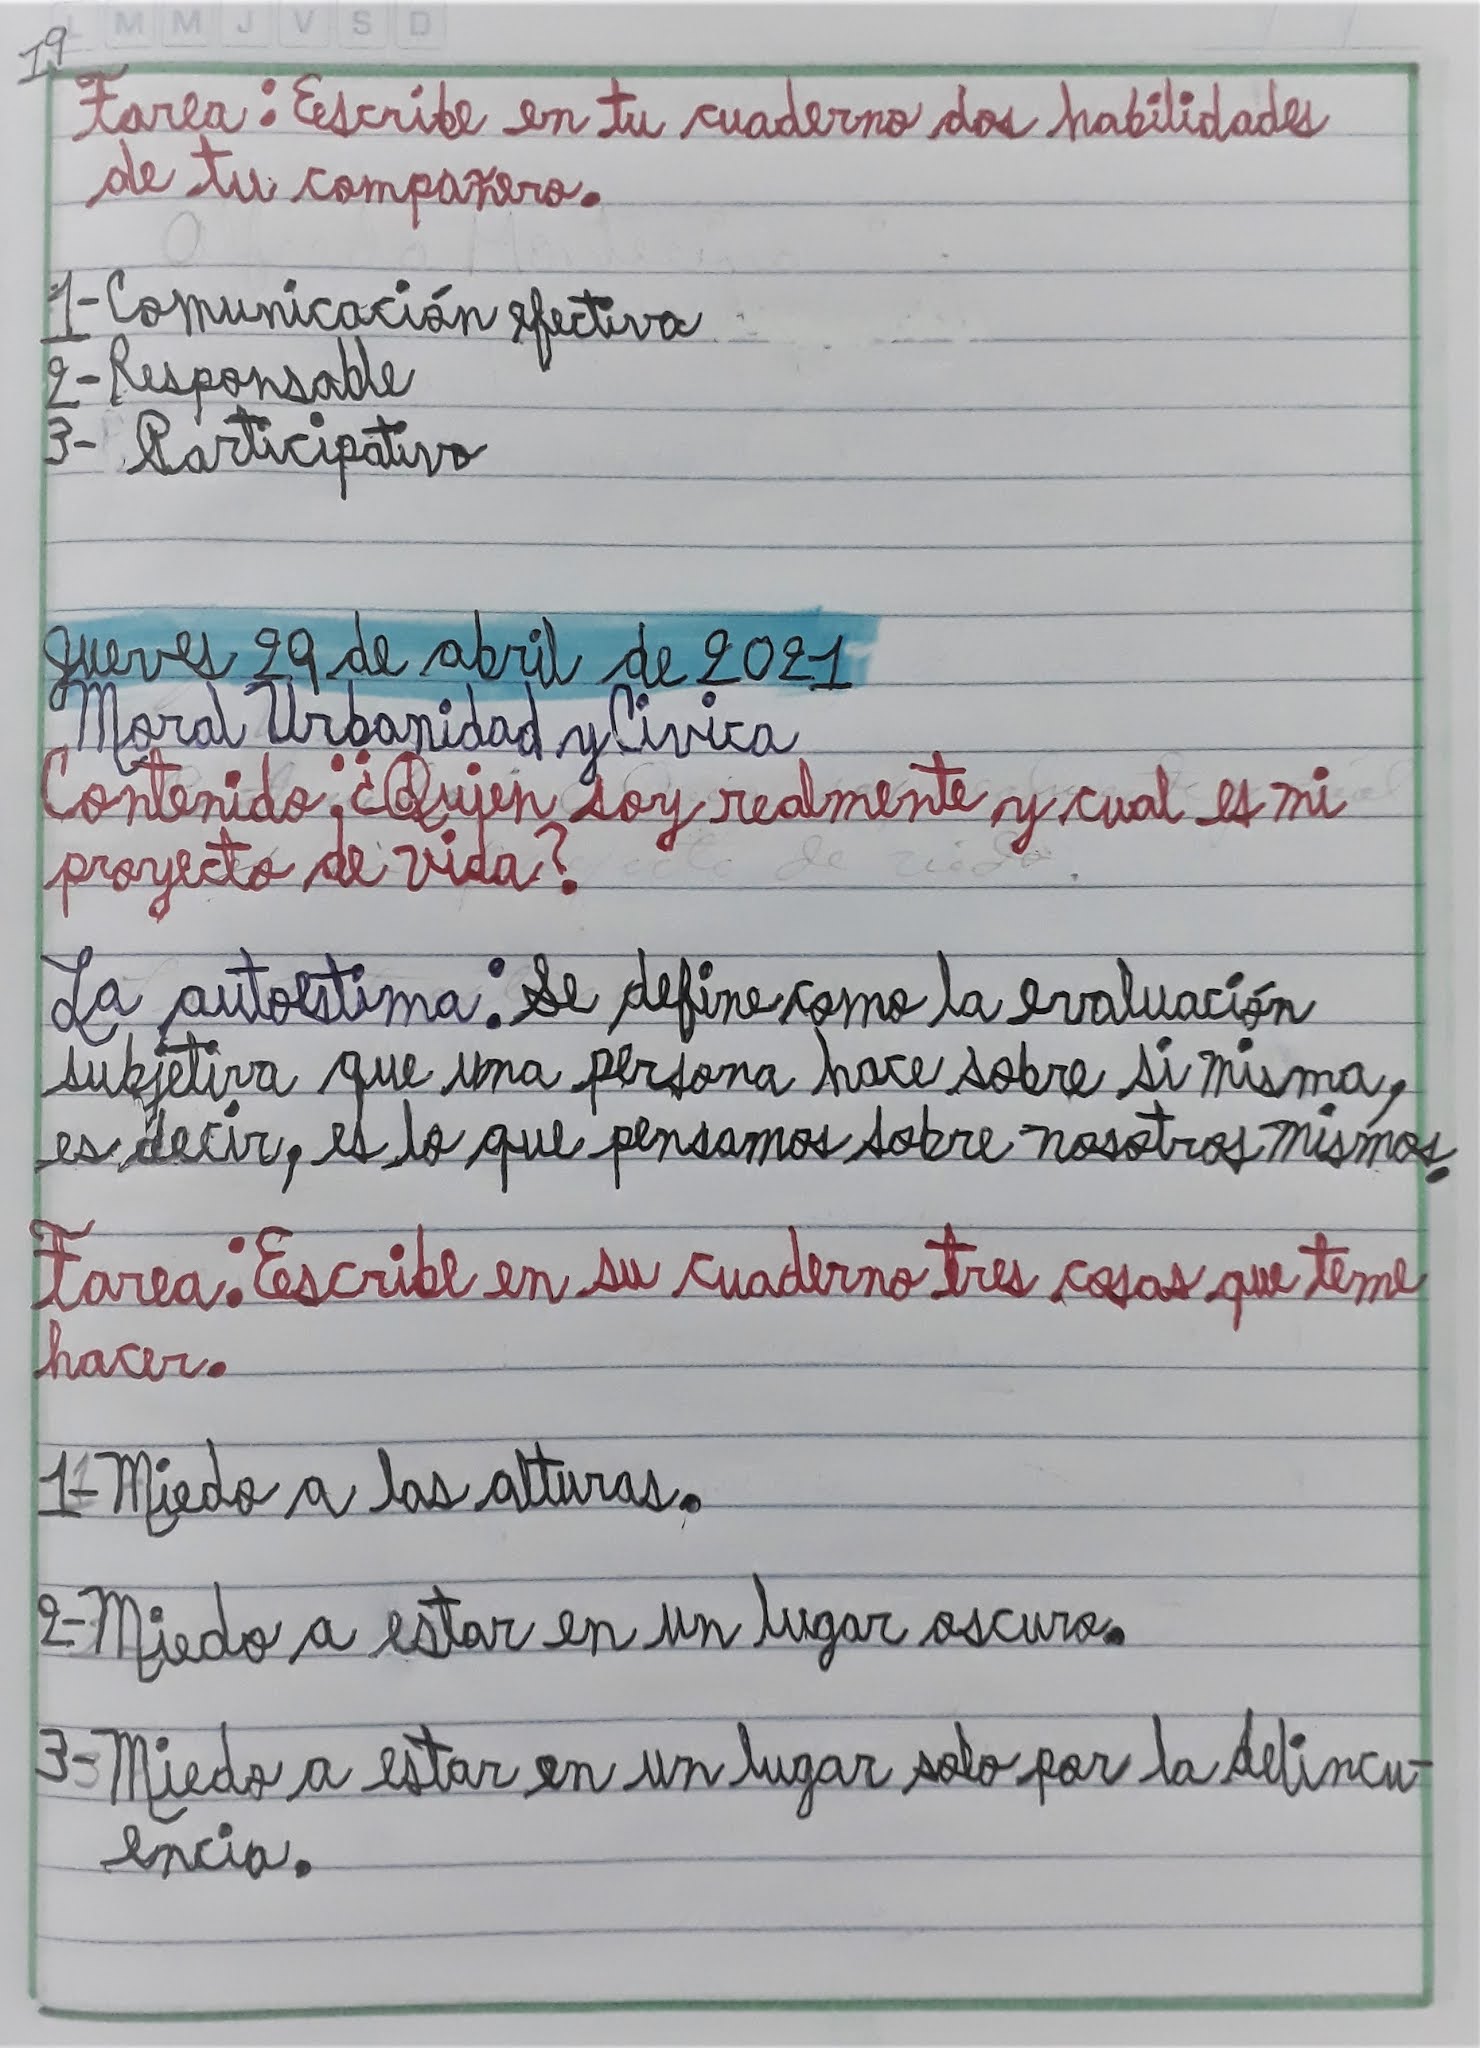 L M M J V S D
19
Tarea: Escribe en tu cuaderno dos habilidades
de tu compañero.
1- Comunicación efectiva
2- Responsable
3- Participativo
jueves 29 de abril de 2021
Moral Urbanidad y Civica
Contenido: ¿Quien soy realmente y cual es mi
proyecto de vida?
La autoestima: Se define como la evaluación
subjetiva que una persona hace sobre si misma,
es decir, es lo que pensamos sobre nosotros mismos.
Tarea: Escribe en su cuaderno tres cosas que teme
hacer.
1- Miedo a las alturas.
2- Miedo a estar en un lugar oscuro.
3- Miedo a estar en un lugar solo por la delincu-
encia.